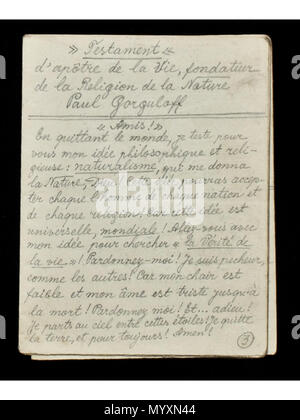 » Testament «
d'apôtre de la Vie, fondateur
de la Religion de la Nature
Paul Gorguloff
« Amis!»
En quittant le monde, je teste pour
vous mon idée philosophique et reli-
gieuse: naturalisme, qui me donna
la Nature,
ter chaque homme de chaque nation et
de chaque religion. Car cette idée est
universelle, mondiale! Alez-vous avec
mon idée pour chercher « la Vérité de
la vie »! Pardonnez-moi! Je suis pecheur,
comme les autres! Car mon chair est
faible et mon âme est triste jusqu'à
la mort! Pardonnez moi! Et... adieu!
Je parts au ciel entre cettes étoiles! Je quitte
la terre, et pour toujours! Amen!
3
alamy
Image ID: MYXN44
www.alamy.com